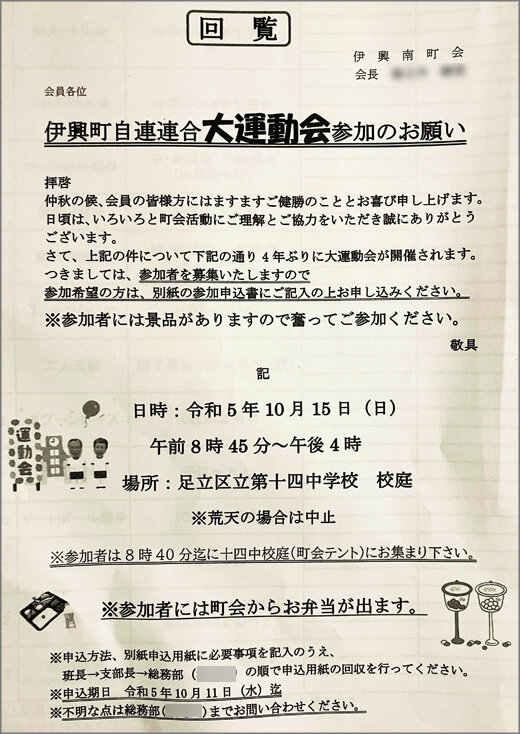 回覧
伊興南町会
会長
会員各位
伊興町自連連合大運動会参加のお願い
拝啓
仲秋の侯、会員の皆様方にはますますご健勝のこととお喜び申し上げます。
日頃は、いろいろと町会活動にご理解とご協力をいただき誠にありがとう
ございます。
さて、上記の件について下記の通り4年ぶりに大運動会が開催されます。
つきましては、参加者を募集いたしますので
参加希望の方は、別紙の参加申込書にご記入の上お申し込みください。
※参加者には景品がありますので奮ってご参加ください。
敬具
記
日時：令和5年10月15日（日）
午前8時45分～午後4時
運動会
場所：足立区立第十四中学校 校庭
※荒天の場合は中止
※参加者は8時40分迄に十四中校庭(町会テント)にお集まり下さい。
※参加者には町会からお弁当が出ます。
※申込方法、別紙申込用紙に必要事項を記入のうえ、
班長→支部長→総務部（ ）の順で申込用紙の回収を行ってください。
※申込期日 令和5年10月11日（水）迄
※不明な点は総務部( )までお問い合わせください。